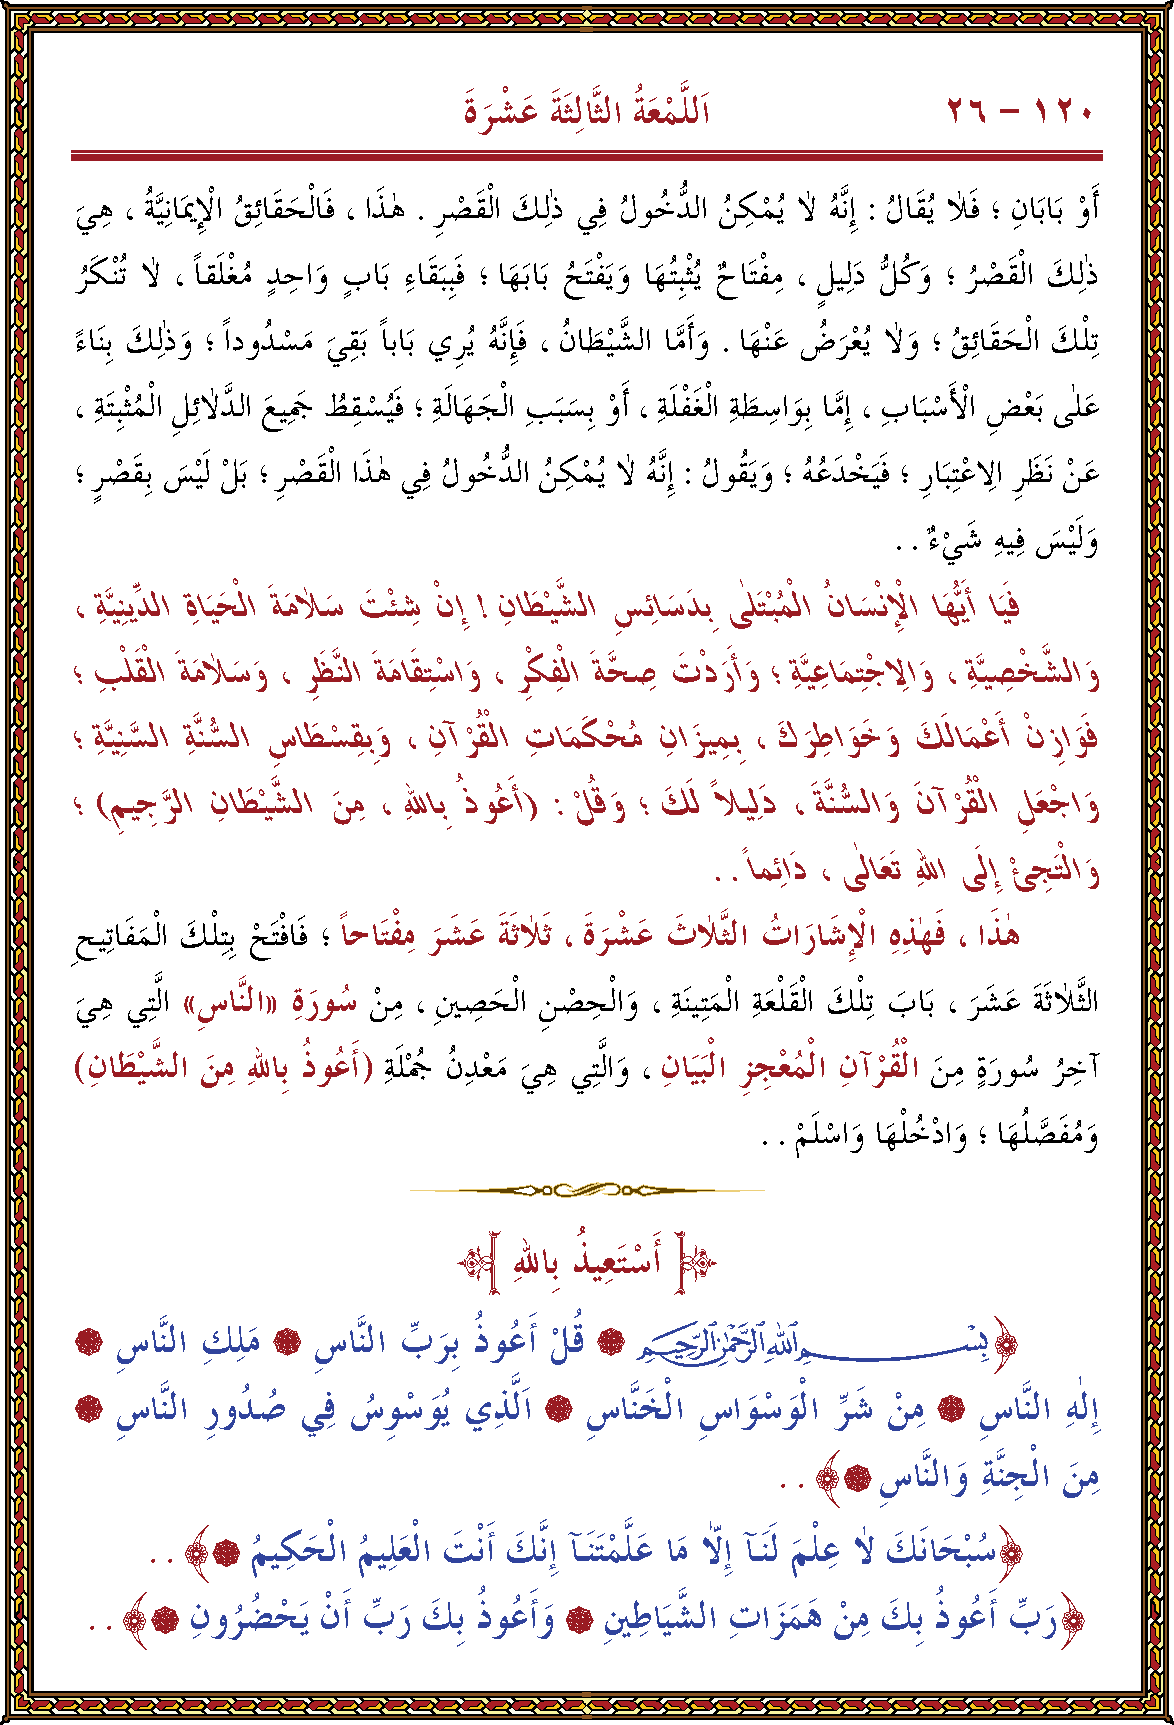 ١٢٠ – ٢٦ اَللَّمْعَةُ الثَّالِثَةَ عَشْرَةَ
أَوْ بَابَانِ ؛ فَلَا يُقَالُ : إِنَّهُ لَا يُمْكِنُ الدُّخُولُ فِي ذٰلِكَ الْقَصْرِ . هٰذَا ، فَالْحَقَائِقُ الْإِيمَانِيَّةُ ، هِيَ
ذٰلِكَ الْقَصْرُ ؛ وَكُلُّ دَلِيلٍ ، مِفْتَاحٌ يُثْبِتُهَا وَيَفْتَحُ بَابَهَا ؛ فَبِبَقَاءِ بَابٍ وَاحِدٍ مُغْلَقاً ، لَا تُنْكَرُ
تِلْكَ الْحَقَائِقُ ؛ وَلَا يُعْرَضُ عَنْهَا . وَأَمَّا الشَّيْطَانُ ، فَإِنَّهُ يُرِي بَاباً بَقِيَ مَسْدُوداً ؛ وَذٰلِكَ بِنَاءً
عَلٰى بَعْضِ الْأَسْبَابِ ، إِمَّا بِوَاسِطَةِ الْغَفْلَةِ ، أَوْ بِسَبَبِ الْجَهَالَةِ ؛ فَيُسْقِطُ جَمِيعَ الدَّلَائِلِ الْمُثْبِتَةِ ،
عَنْ نَظَرِ الِاعْتِبَارِ ؛ فَيَخْدَعُهُ ؛ وَيَقُولُ : إِنَّهُ لَا يُمْكِنُ الدُّخُولُ فِي هٰذَا الْقَصْرِ ؛ بَلْ لَيْسَ بِقَصْرٍ ؛
وَلَيْسَ فِيهِ شَيْءٌ . .
فَيَا أَيُّهَا الْإِنْسَانُ الْمُبْتَلٰى بِدَسَائِسِ الشَّيْطَانِ ! إِنْ شِئْتَ سَلَامَةَ الْحَيَاةِ الدِّينِيَّةِ ،
وَالشَّخْصِيَّةِ ، وَالِاجْتِمَاعِيَّةِ ؛ وَأَرَدْتَ صِحَّةَ الْفِكْرِ ، وَاسْتِقَامَةَ النَّظَرِ ، وَسَلَامَةَ الْقَلْبِ ؛
فَوَازِنْ أَعْمَالَكَ وَخَوَاطِرَكَ ، بِمِيزَانِ مُحْكَمَاتِ الْقُرْآنِ ، وَبِقِسْطَاسِ السُّنَّةِ السَّنِيَّةِ ؛
وَاجْعَلِ الْقُرْآنَ وَالسُّنَّةَ ، دَلِيلاً لَكَ ؛ وَقُلْ : (أَعُوذُ بِاللهِ ، مِنَ الشَّيْطَانِ الرَّجِيمِ) ؛
وَالْتَجِئْ إِلَى اللهِ تَعَالٰى ، دَائِماً . .
هٰذَا ، فَهٰذِهِ الْإِشَارَاتُ الثَّلَاثَ عَشْرَةَ ، ثَلَاثَةَ عَشَرَ مِفْتَاحاً ؛ فَافْتَحْ بِتِلْكَ الْمَفَاتِيحِ
الثَّلَاثَةَ عَشَرَ ، بَابَ تِلْكَ الْقَلْعَةِ الْمَتِينَةِ ، وَالْحِصْنِ الْحَصِينِ ، مِنْ سُورَةِ «النَّاسِ» الَّتِي هِيَ
آخِرُ سُورَةٍ مِنَ الْقُرْآنِ الْمُعْجِزِ الْبَيَانِ ، وَالَّتِي هِيَ مَعْدِنُ جُمْلَةِ (أَعُوذُ بِاللهِ مِنَ الشَّيْطَانِ)
وَمُفَصَّلُهَا ؛ وَادْخُلْهَا وَاسْلَمْ . .
[ أَسْتَعِيذُ بِاللهِ ]
﴿بِسْمِ اللهِ الرَّحْمٰنِ الرَّحِيمِ ۞ قُلْ أَعُوذُ بِرَبِّ النَّاسِ ۞ مَلِكِ النَّاسِ ۞
إِلٰهِ النَّاسِ ۞ مِنْ شَرِّ الْوَسْوَاسِ الْخَنَّاسِ ۞ اَلَّذِي يُوَسْوِسُ فِي صُدُورِ النَّاسِ ۞
مِنَ الْجِنَّةِ وَالنَّاسِ ۞﴾ . .
﴿سُبْحَانَكَ لَا عِلْمَ لَنَآ إِلَّا مَا عَلَّمْتَنَآ إِنَّكَ أَنْتَ الْعَلِيمُ الْحَكِيمُ ۞﴾ . .
﴿رَبِّ أَعُوذُ بِكَ مِنْ هَمَزَاتِ الشَّيَاطِينِ ۞ وَأَعُوذُ بِكَ رَبِّ أَنْ يَحْضُرُونِ ۞﴾ . .